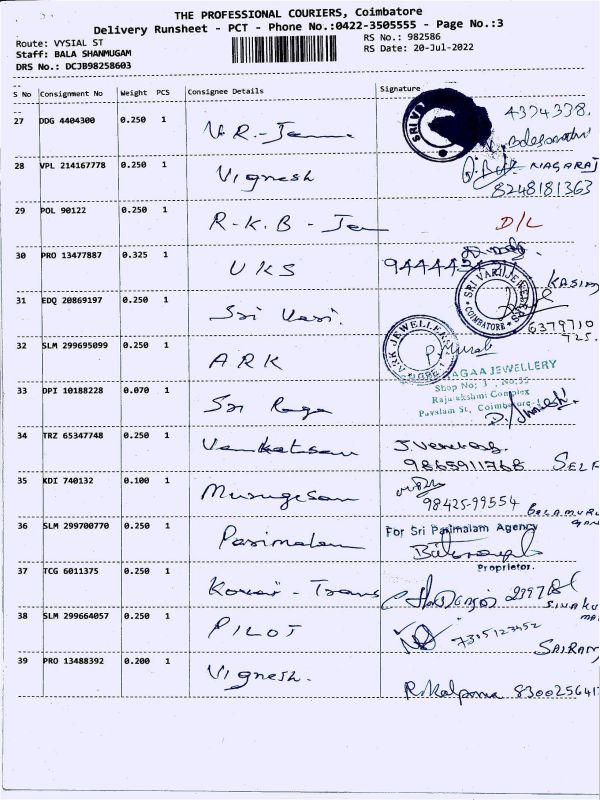 THE PROFESSIONAL COURIERS, Coimbatore
Delivery Runsheet - PCT - Phone No.:0422-3505555 - Page No.:3
Route: VYSIAL ST RS No.: 982586
Staff: BALA SHANMUGAM RS Date: 20-Jul-2022
DRS No.: DCJB98258603
S No Consignment No Weight PCS Consignee Details Signature
27 DDG 4404300 0.250 1 V.R.- 4374338.
28 VPL 214167778 0.250 1 Vignesh NAGARAJ
8248181363
29 POL 90122 0.250 1 R-K.B- Je D/L
30 PRO 13477887 0.325 1 UKS 94442
SRI VARI JEWELLERS COIMBATORE KASIM
31 EDQ 20869197 0.250 1 Sri Vari. 6379710
725.
32 SLM 299695099 0.250 1 ARK ARK JEWELLERS P. Murali
RAGAA JEWELLERY
33 DPI 10188228 0.070 1 Sri Raga Shop No; 1, No.55
Rajalakshmi Complex
Pavslam St, Coimbatore-1
34 TRZ 65347748 0.250 1 Venkatesan J. Venkatesh
9865911768 SELF
35 KDI 740132 0.100 1 Murugesan 98425-99554 BALAMURU
36 SLM 299700770 0.250 1 Parimalam For Sri Parimalam Agency
Proprietor.
37 TCG 6011375 0.250 1 Kovai - Trans SIVAKU
MA
38 SLM 299664057 0.250 1 PILOT 7305123452 SAIRAM
39 PRO 13488392 0.200 1 Vignesh. R. Kalpana 830025641